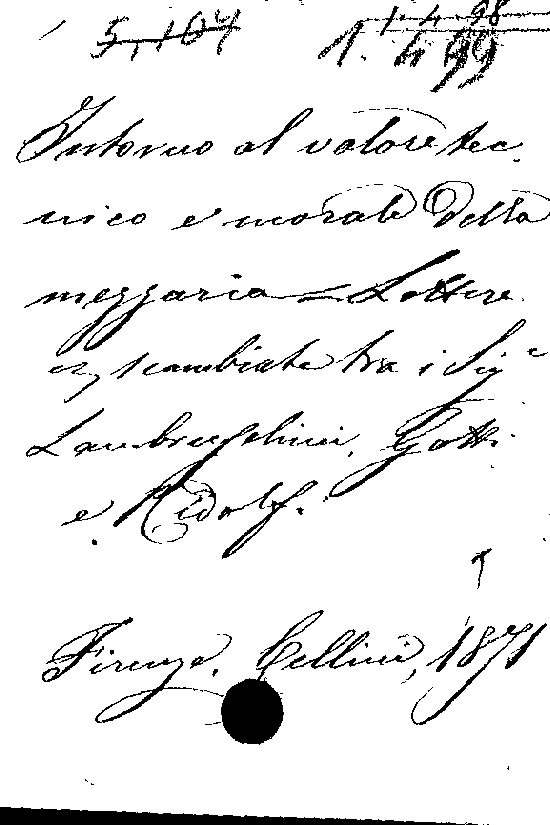 5,104 1.4.98
1.499
Intorno al valore tec
nico e morale della
mezzaria = Lettere
scambiate tra i Sig.i
Lambruschini, Gotti
e Ridolfi.
Firenze, Cellini, 1871